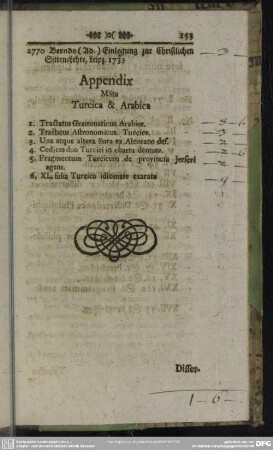 )o( 153
2770 Bernds (Ad.) Einleitung zur Christlichen 3
Sitten/Lehre, Leipz. 1733
Appendix
Msta
Turcica & Arabica
1. Tractatus Grammaticus Arabice. 8 - 6
2. Tractatus Astronomicus. Turcice.
3. Una atque altera Sura ex Alcorano des.
4. Codices duo Turcici in charta
5. Fragmentum Turcicum de provincia Jerseel
agens.
6. XL. folia Turcico idiomate exarata 9
Disser-
1 - 6 -